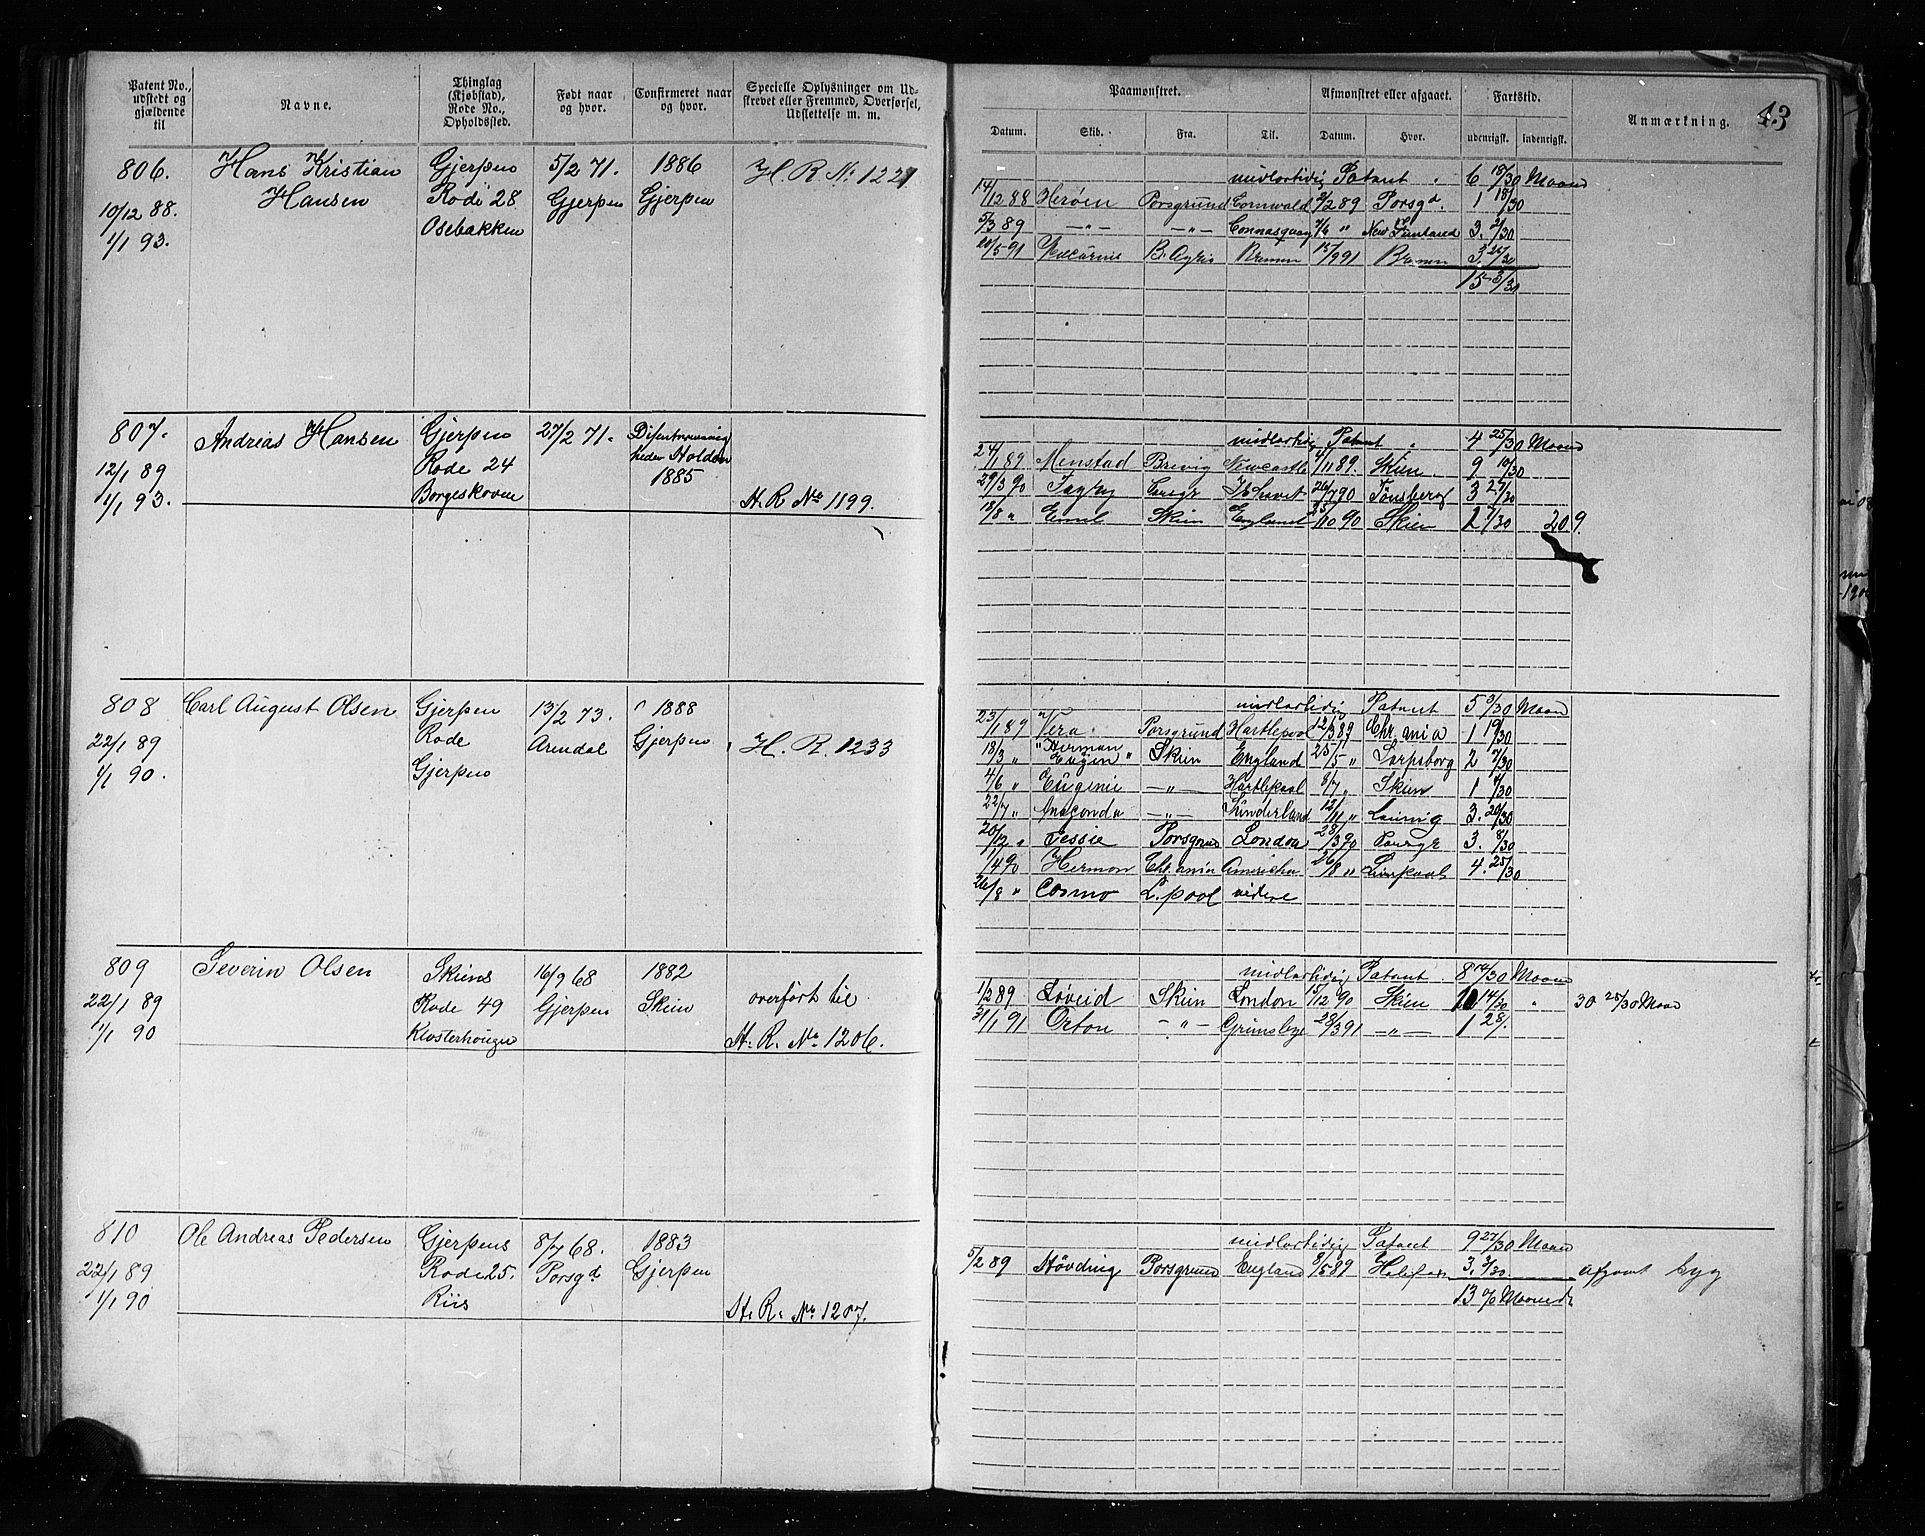 Patent No., udstedt og gjældende til
Navne.
Thinglag (Kjøbstad), Rode No., Opholdssted.
Født naar og hvor.
Confirmeret naar og hvor.
Specielle Oplysninger om Udskrevet eller Fremmed, Overførsel, Udslettelse m. m.
Paamønstret.
Afmønstret eller afgaaet.
Fartstid.
Anmærkning.
43
Datum. Skib. Fra. Til. Datum. Hvor. udenrigst. indenrigst.
806. Hans Kristian Gjerpen 5/2 71. 1886 H. R. No 1221
10/12 88. Hansen Rode 28 Gjerpen Gjerpen
1/1 93. Osebakken
midlertidig Patent 6 19/30 Maaned
14/12 88 Herøen Porsgrund Cornwald 9/2 89 Porsgd. 1 18/30
5/3 89 —"— —"— 7/6 " 3. 2/30
10/5 91 B. Ayris Bremen 15/9 91 Bremen 3. 25/30
15 3/30
807. Andreas Hansen Gjerpen 27/2 71.
12/1 89 Rode 24 Holden
1/1 93. Borgeskoven 1885 H. R No 1199.
midlertidig Patent 4 25/30 Maaned
24/1 89 Menstad Brevig Newcastle 4/11 89. Skien 9 10/30
29/3 90 26/7 90 Tønsberg 3 27/30
18/8 " Emil Skien England 25/10 90 Skien 2 7/30 20 9.
808 Carl August Olsen Gjerpen 13/2 73. 1888
22/1 89 Rode Arendal Gjerpen H. R. 1233
1/1 90. Gjerpen
midlertidig Patent 5 9/30 Maan
23/1 89 Vera Porsgrund Hartlepool 12/3 89 Chr.ania 1 19/30
18/3 " "Herman Eugen" Skien England 25/5 " Sarpsborg 2 7/30
4/6 " Eugenie —"— Hartlepool 8/7 " Skien 1 4/30
22/7 " Anaconda —"— Sunderland 12/11 " 3. 20/30
20/12 " Jessie Porsgrund London 28/3 90 3. 8/30
1/4 90 Herman Chr.ania Amerika 26/8 " Liverpool 4. 25/30
26/8 " Cosmo L.pool videre
809 Severin Olsen Skiens 16/9 68 1882
22/1 89 Rode 49 Gjerpen Skien overført til
1/1 90 Klosterhougen H. R. No 1206.
midlertidig Patent 8 14/30 Maaned
1/2 89 Løveid Skien London 15/12 90 Skien 14/30 " 30 25/30 Maan
31/1 91 Orton —"— Grimsby 28/3 91 —"— 1 28/.
810 Ole Andreas Pedersen Gjerpens 8/7 68. 1883
22/1 89 Rode 25. Porsgd Gjerpen
1/1 90 Riis H. R. No 1207.
midlertidig Patent 9 27/30 Maan
5/2 89 Høvding Porsgrund England 8/5 89 Halifax 3. 3/30 afgaaet syg
13 0/ Maaneder